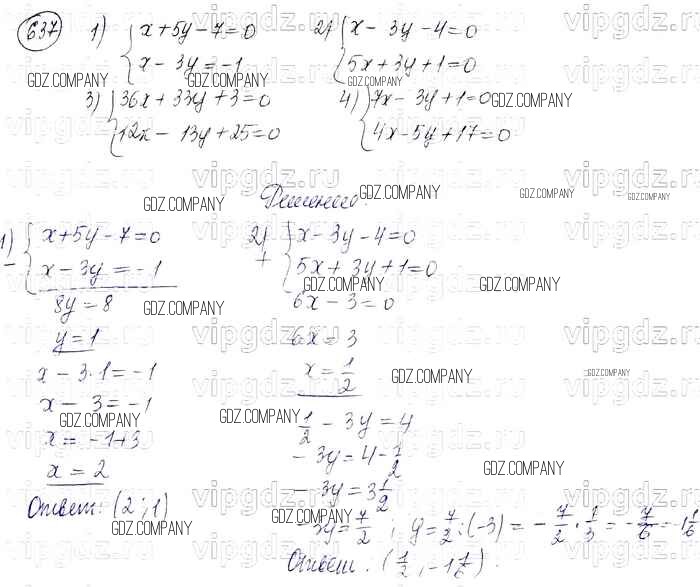 637 1) { x + 5y - 7 = 0 2) { x - 3y - 4 = 0
x - 3y = -1 5x + 3y + 1 = 0
3) { 36x + 33y + 3 = 0 4) { 7x - 3y + 1 = 0
12x - 13y + 25 = 0 4x - 5y + 17 = 0
Решение.
1) - { x + 5y - 7 = 0
x - 3y = -1
8y = 8
y = 1
x - 3·1 = -1
x - 3 = -1
x = -1+3
x = 2
Ответ: (2; 1)
2) + { x - 3y - 4 = 0
5x + 3y + 1 = 0
6x - 3 = 0
6x = 3
x = 1/2
1/2 - 3y = 4
-3y = 4 - 1/2
-3y = 3 1/2
-3y = 7/2 ; y = 7/2 : (-3) = -7/2 · 1/3 = -7/6 = -1 1/6
Ответ. (1/2, -1 1/6).
GDZ.COMPANY
vipgdz.ru